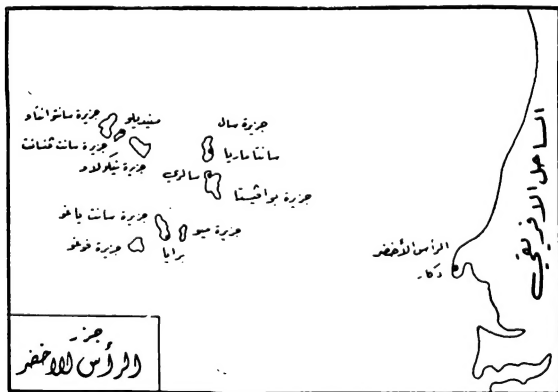 جزيرة سانتوانتاو
منيديلو
جزيرة سانت فنسانت
جزيرة نيكولاو
جزيرة سال
سانتا ماريا
سالري
جزيرة بوافيستا
جزيرة سانت ياغو
جزيرة ميو
جزيرة فوغو
برايا
الرأس الأخضر
دكار
الساحل الافريقي
جزر
الرأس الاخضر